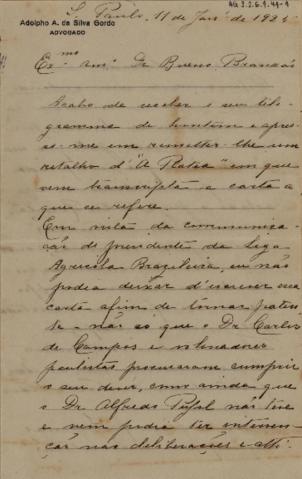 S. Paulo, 11 de Janº de 1925
Adolpho A. da Silva Gordo
ADVOGADO
Exmo amº Dr Bueno Brandão
Acabo de receber o seu tele-
gramma de hontem e apres-
so-me em remetter-lhe um
retalho d'"A Platea" em que
vem transcripta a carta a
que se refere.
Em vista da communica-
ção do presidente da Liga
Agricola Brazileira, eu não
podia deixar d'escrever uma
carta afim de tornar paten-
te - não só que o Dr Carlos
de Campos e
paulistas procuraram cumprir
o seu dever, como ainda que
o Dr. Alfredo Pujol não teve
e nem podia ter interven-
ção nas deliberações e